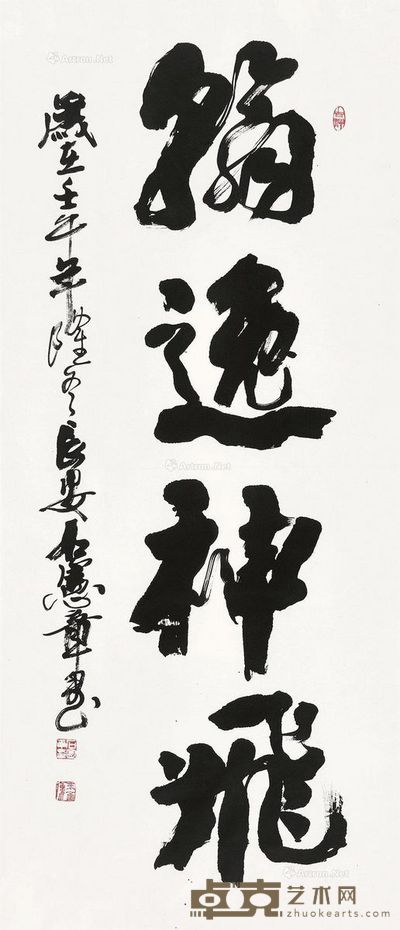 翰逸神飞
歲在壬午年隆冬長安石憲章書
Artron.Net
Artron.Net
Artron.Net
卓克艺术网
zhuokearts.com